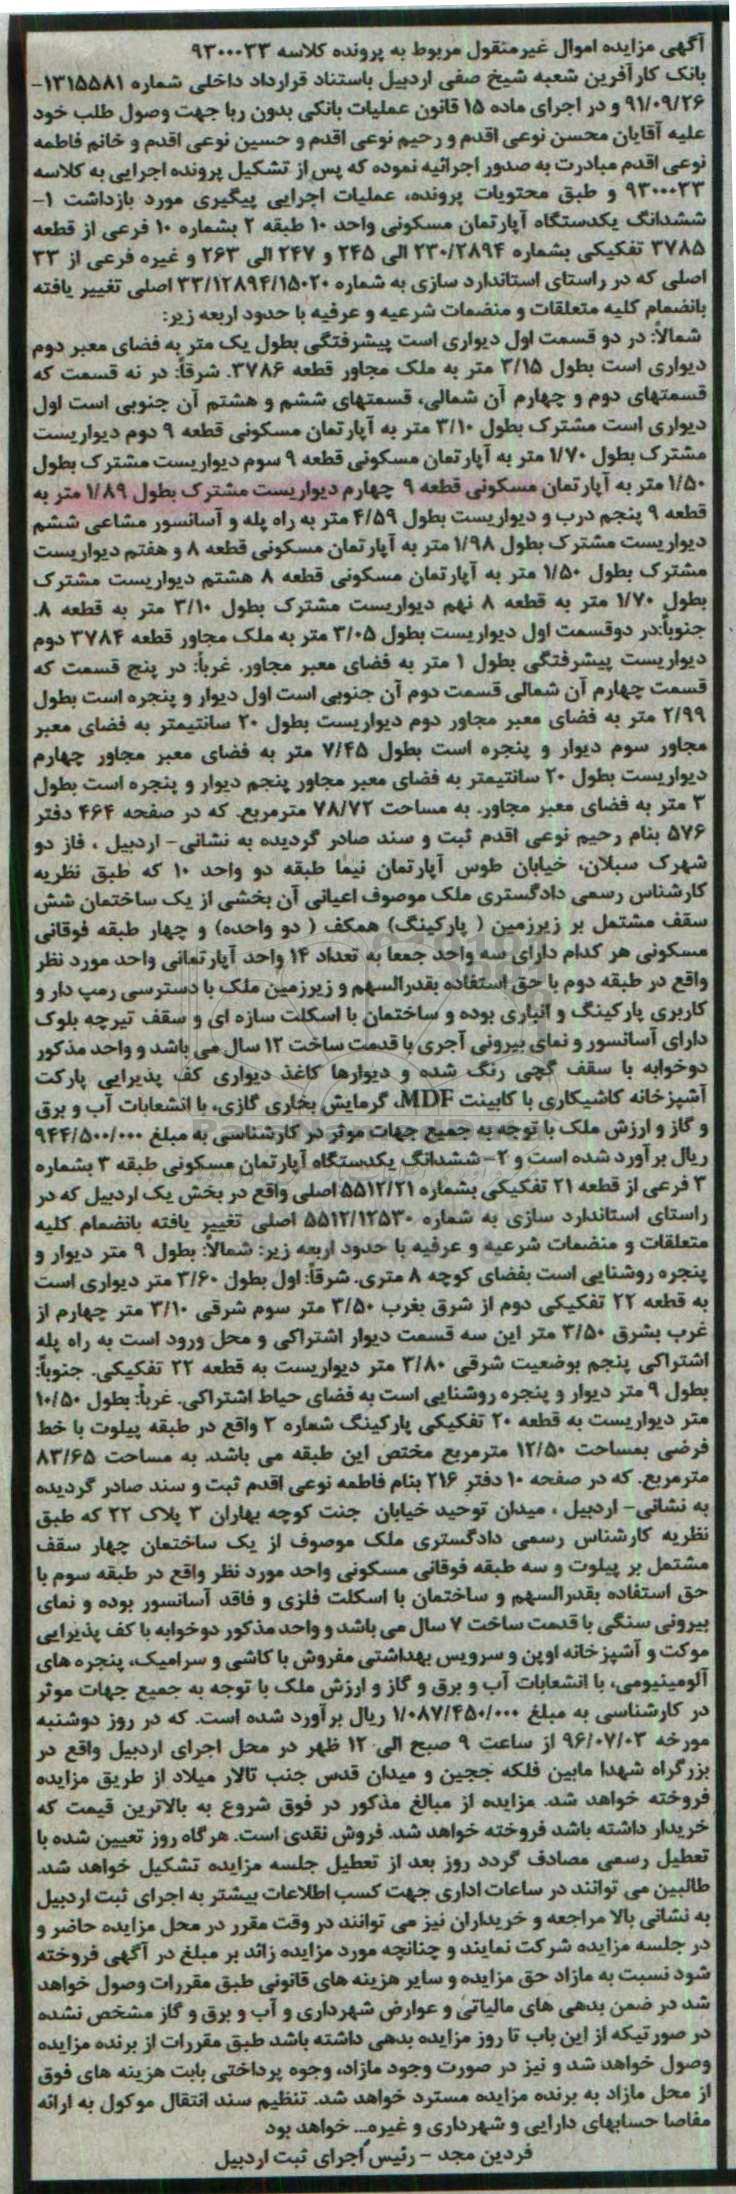 آگهی مزایده اموال غیرمنقول مربوط به پرونده کلاسه ۹۳۰۰۰۳۳
بانک کارآفرین شعبه شیخ صفی اردبیل باستناد قرارداد داخلی شماره ۱۳۱۵۵۸۱-
۹۱/۰۹/۲۶ و در اجرای ماده ۱۵ قانون عملیات بانکی بدون ربا جهت وصول طلب خود
علیه آقایان محسن نوعی اقدم و رحیم نوعی اقدم و حسین نوعی اقدم و خانم فاطمه
نوعی اقدم مبادرت به صدور اجرائیه نموده که پس از تشکیل پرونده اجرایی به کلاسه
۹۳۰۰۰۳۳ و طبق محتویات پرونده، عملیات اجرایی پیگیری مورد بازداشت ۱-
ششدانگ یکدستگاه آپارتمان مسکونی واحد ۱۰ طبقه ۲ بشماره ۱۰ فرعی از قطعه
۳۷۸۵ تفکیکی بشماره ۲۳۰/۲۸۹۴ الی ۲۴۵ و ۲۴۷ الی ۲۶۳ و غیره فرعی از ۳۳
اصلی که در راستای استاندارد سازی به شماره ۳۳/۱۲۸۹۴/۱۵۰۲۰ اصلی تغییر یافته
بانضمام کلیه متعلقات و منضمات شرعیه و عرفیه با حدود اربعه زیر:
شمالاً: در دو قسمت اول دیواری است پیشرفتگی بطول یک متر به فضای معبر دوم
دیواری است بطول ۳/۱۵ متر به ملک مجاور قطعه ۳۷۸۶. شرقاً: در نه قسمت که
قسمتهای دوم و چهارم آن شمالی، قسمتهای ششم و هشتم آن جنوبی است اول
دیواری است مشترک بطول ۳/۱۰ متر به آپارتمان مسکونی قطعه ۹ دوم دیواریست
مشترک بطول ۱/۷۰ متر به آپارتمان مسکونی قطعه ۹ سوم دیواریست مشترک بطول
۱/۵۰ متر به آپارتمان مسکونی قطعه ۹ چهارم دیواریست مشترک بطول ۱/۸۹ متر به
قطعه ۹ پنجم درب و دیواریست بطول ۴/۵۹ متر به راه پله و آسانسور مشاعی ششم
دیواریست مشترک بطول ۱/۹۸ متر به آپارتمان مسکونی قطعه ۸ و هفتم دیواریست
مشترک بطول ۱/۵۰ متر به آپارتمان مسکونی قطعه ۸ هشتم دیواریست مشترک
بطول ۱/۷۰ متر به قطعه ۸ نهم دیواریست مشترک بطول ۳/۱۰ متر به قطعه ۸.
جنوباً:در دوقسمت اول دیواریست بطول ۳/۰۵ متر به ملک مجاور قطعه ۳۷۸۴ دوم
دیواریست پیشرفتگی بطول ۱ متر به فضای معبر مجاور. غرباً: در پنج قسمت که
قسمت چهارم آن شمالی قسمت دوم آن جنوبی است اول دیوار و پنجره است بطول
۲/۹۹ متر به فضای معبر مجاور دوم دیواریست بطول ۲۰ سانتیمتر به فضای معبر
مجاور سوم دیوار و پنجره است بطول ۷/۴۵ متر به فضای معبر مجاور چهارم
دیواریست بطول ۲۰ سانتیمتر به فضای معبر مجاور پنجم دیوار و پنجره است بطول
۳ متر به فضای معبر مجاور. به مساحت ۷۸/۷۲ مترمربع. که در صفحه ۴۶۴ دفتر
۵۷۶ بنام رحیم نوعی اقدم ثبت و سند صادر گردیده به نشانی- اردبیل ، فاز دو
شهرک سبلان، خیابان طوس آپارتمان نیما طبقه دو واحد ۱۰ که طبق نظریه
کارشناس رسمی دادگستری ملک موصوف اعیانی آن بخشی از یک ساختمان شش
سقف مشتمل بر زیرزمین ( پارکینگ) همکف ( دو واحده) و چهار طبقه فوقانی
مسکونی هر کدام دارای سه واحد جمعا به تعداد ۱۴ واحد آپارتمانی واحد مورد نظر
واقع در طبقه دوم با حق استفاده بقدرالسهم و زیرزمین ملک با دسترسی رمپ دار و
کاربری پارکینگ و انباری بوده و ساختمان با اسکلت سازه ای و سقف تیرچه بلوک
دارای آسانسور و نمای بیرونی آجری با قدمت ساخت ۱۲ سال می باشد و واحد مذکور
دوخوابه با سقف گچی رنگ شده و دیوارها کاغذ دیواری کف پذیرایی پارکت
آشپزخانه کاشیکاری با کابینت MDF، گرمایش بخاری گازی، با انشعابات آب و برق
و گاز و ارزش ملک با توجه به جمیع جهات موثر در کارشناسی به مبلغ ۹۴۴/۵۰۰/۰۰۰
ریال برآورد شده است و ۲- ششدانگ یکدستگاه آپارتمان مسکونی طبقه ۳ بشماره
۳ فرعی از قطعه ۲۱ تفکیکی بشماره ۵۵۱۲/۲۱ اصلی واقع در بخش یک اردبیل که در
راستای استاندارد سازی به شماره ۵۵۱۲/۱۲۵۳۰ اصلی تغییر یافته بانضمام کلیه
متعلقات و منضمات شرعیه و عرفیه با حدود اربعه زیر: شمالاً: بطول ۹ متر دیوار و
پنجره روشنایی است بفضای کوچه ۸ متری. شرقاً: اول بطول ۳/۶۰ متر دیواری است
به قطعه ۲۲ تفکیکی دوم از شرق بغرب ۳/۵۰ متر سوم شرقی ۳/۱۰ متر چهارم از
غرب بشرق ۳/۵۰ متر این سه قسمت دیوار اشتراکی و محل ورود است به راه پله
اشتراکی پنجم بوضعیت شرقی ۳/۸۰ متر دیواریست به قطعه ۲۲ تفکیکی. جنوباً:
بطول ۹ متر دیوار و پنجره روشنایی است به فضای حیاط اشتراکی. غرباً: بطول ۱۰/۵۰
متر دیواریست به قطعه ۲۰ تفکیکی پارکینگ شماره ۳ واقع در طبقه پیلوت با خط
فرضی بمساحت ۱۲/۵۰ مترمربع مختص این طبقه می باشد. به مساحت ۸۳/۶۵
مترمربع. که در صفحه ۱۰ دفتر ۲۱۶ بنام فاطمه نوعی اقدم ثبت و سند صادر گردیده
به نشانی- اردبیل ، میدان توحید خیابان جنت کوچه بهاران ۳ پلاک ۲۲ که طبق
نظریه کارشناس رسمی دادگستری ملک موصوف از یک ساختمان چهار سقف
مشتمل بر پیلوت و سه طبقه فوقانی مسکونی واحد مورد نظر واقع در طبقه سوم با
حق استفاده بقدرالسهم و ساختمان با اسکلت فلزی و فاقد آسانسور بوده و نمای
بیرونی سنگی با قدمت ساخت ۷ سال می باشد و واحد مذکور دوخوابه با کف پذیرایی
موکت و آشپزخانه اوپن و سرویس بهداشتی مفروش با کاشی و سرامیک، پنجره های
آلومینیومی، با انشعابات آب و برق و گاز و ارزش ملک با توجه به جمیع جهات موثر
در کارشناسی به مبلغ ۱/۰۸۷/۴۵۰/۰۰۰ ریال برآورد شده است. که در روز دوشنبه
مورخه ۹۶/۰۷/۰۳ از ساعت ۹ صبح الی ۱۲ ظهر در محل اجرای اردبیل واقع در
بزرگراه شهدا مابین فلکه ججین و میدان قدس جنب تالار میلاد از طریق مزایده
فروخته خواهد شد. مزایده از مبالغ مذکور در فوق شروع به بالاترین قیمت که
خریدار داشته باشد فروخته خواهد شد. فروش نقدی است. هرگاه روز تعیین شده با
تعطیل رسمی مصادف گردد روز بعد از تعطیل جلسه مزایده تشکیل خواهد شد.
طالبین می توانند در ساعات اداری جهت کسب اطلاعات بیشتر به اجرای ثبت اردبیل
به نشانی بالا مراجعه و خریداران نیز می توانند در وقت مقرر در محل مزایده حاضر و
در جلسه مزایده شرکت نمایند و چنانچه مورد مزایده زائد بر مبلغ در آگهی فروخته
شود نسبت به مازاد حق مزایده و سایر هزینه های قانونی طبق مقررات وصول خواهد
شد در ضمن بدهی های مالیاتی و عوارض شهرداری و آب و برق و گاز مشخص نشده
در صورتیکه از این باب تا روز مزایده بدهی داشته باشد طبق مقررات از برنده مزایده
وصول خواهد شد و نیز در صورت وجود مازاد، وجوه پرداختی بابت هزینه های فوق
از محل مازاد به برنده مزایده مسترد خواهد شد. تنظیم سند انتقال موکول به ارائه
مفاصا حسابهای دارایی و شهرداری و غیره... خواهد بود
فردین مجد - رئیس اجرای ثبت اردبیل